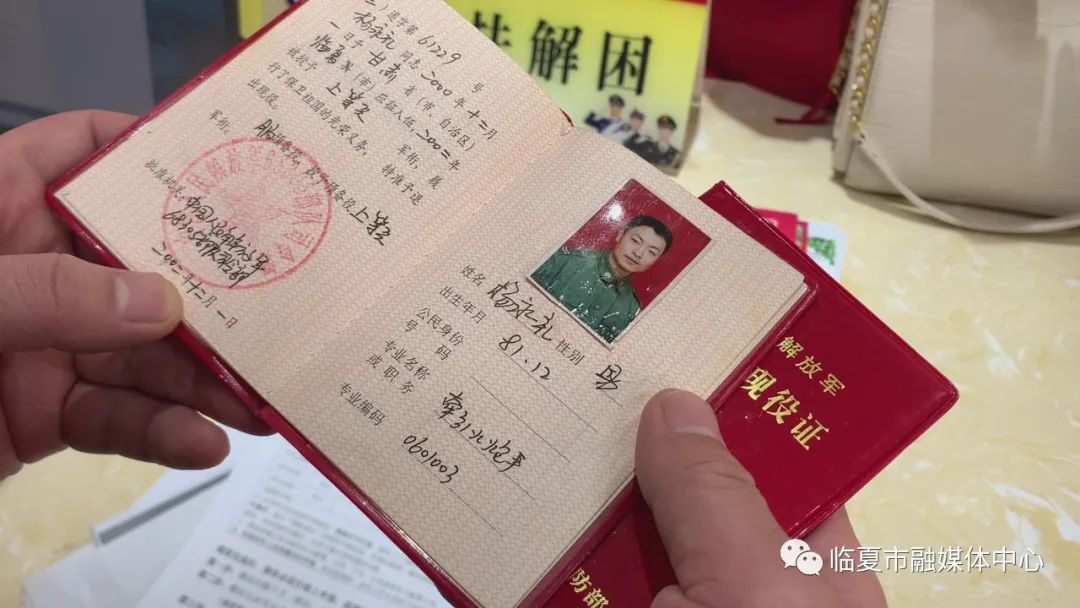 解困
(二)退字第 61229 号
杨永礼 同志二〇〇〇年十二月
一日于 甘肃 省（市、自治区）
临夏 县（市）应征入伍，二〇〇二年
被授予 上等兵 军衔，履
行了保卫祖国的光荣义务，特准予退
出现役。
服预备役，授予预备役上等兵
军衔。
批准机关：中国人民解放军
二〇〇二年十二月一日
姓名 杨永礼 性别 男
出生年月 81.12
公民身份
号 码
专业名称
或职务 牵引火炮手
专业编码 0601003
解放军
现役证
防部
临夏市融媒体中心